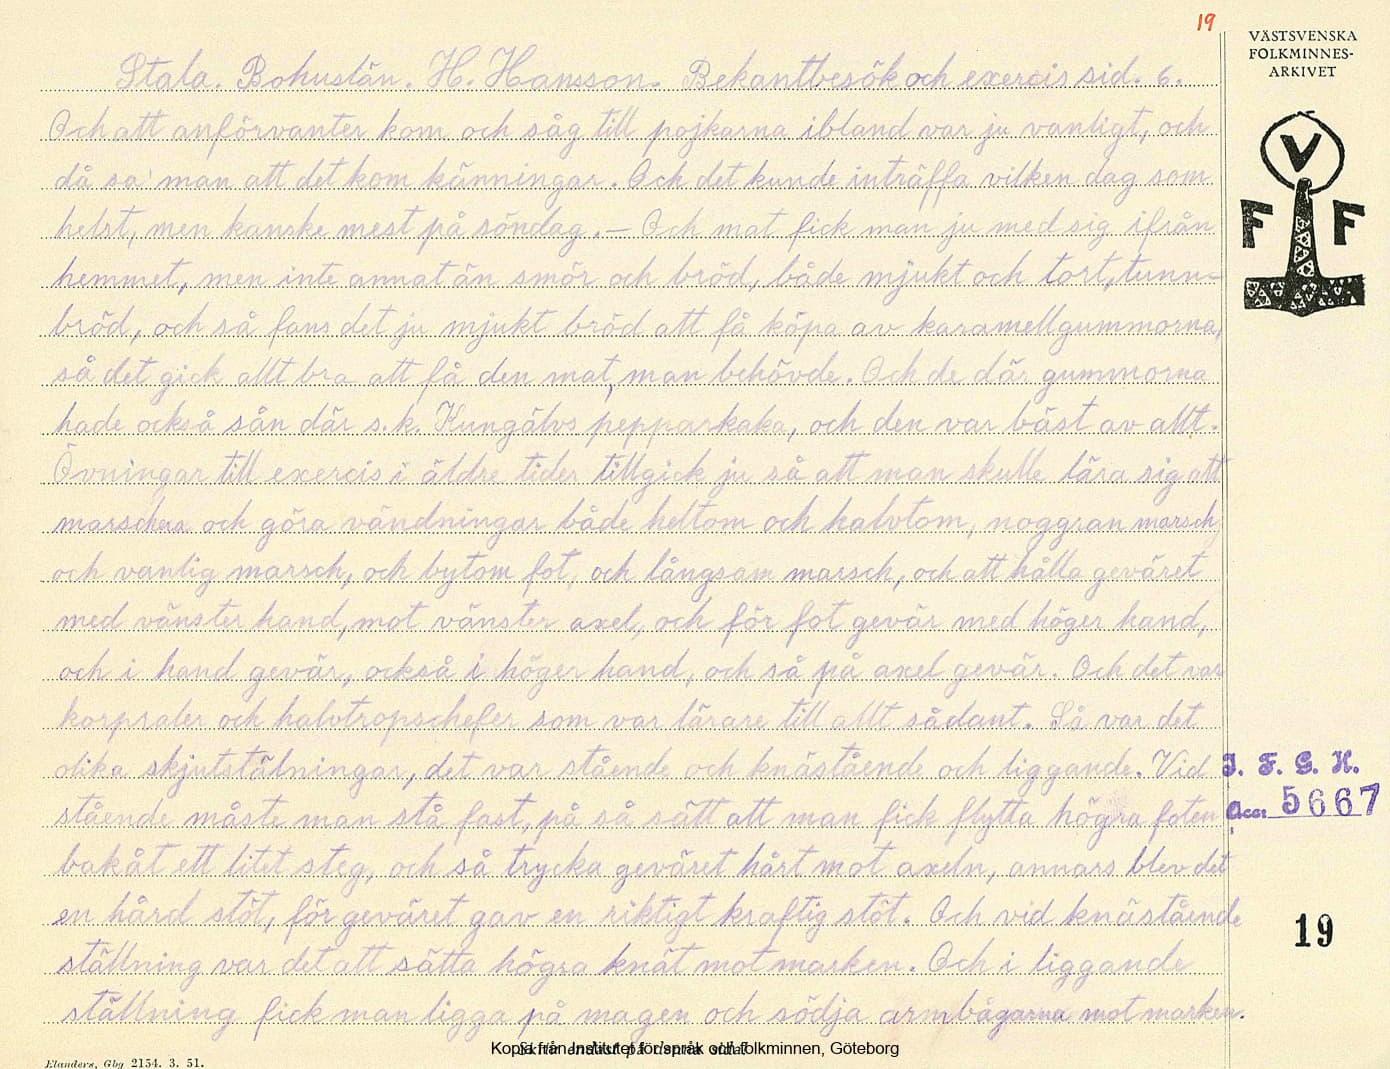 19
VÄSTSVENSKA
FOLKMINNES-
ARKIVET
V
F F
Stala. Bohuslän. H. Hansson. Bekantbesök och exercis sid. 6.
Och att anförvanter kom och såg till pojkarna ibland var ju vanligt, och
då sa' man att det kom känningar. Och det kunde inträffa vilken dag som
helst, men kanske mest på söndag. – Och mat fick man ju med sig ifrån
hemmet, men inte annat än smör och bröd, både mjukt och tort, tunn-
bröd, och så fans det ju mjukt bröd att få köpa av karamellgummorna,
så det gick allt bra att få den mat, man behövde. Och de där gummorna
hade också sån där s.k. Kungälvs pepparkaka, och den var bäst av allt.
Övningar till exercis i äldre tider tillgick ju så att man skulle lära sig att
marschera och göra vändningar både heltom och halvtom, noggran marsch
och vanlig marsch, och bytom fot, och långsam marsch, och att hålla geväret
med vänster hand, mot vänster axel, och för fot gevär med höger hand,
och i hand gevär, också i höger hand, och så på axel gevär. Och det var
korpraler och halvtropschefer som var lärare till allt sådant. Så var det
olika skjutställningar, det var stående och knästående och liggande. Vid
stående måste man stå fast, på så sätt att man fick flytta högra foten
bakåt ett litet steg, och så trycka geväret hårt mot axeln, annars blev det
en hård stöt, för geväret gav en riktigt kraftig stöt. Och vid knästående
ställning var det att sätta högra knät mot marken. Och i liggande
ställning fick man ligga på magen och södja armbågarna mot marken.
I. F. G. H.
Acc. 5667
19
Skriv endast på denna sida!
Kopia från Institutet för språk och folkminnen, Göteborg
Elanders, Gbg 2154. 3. 51.